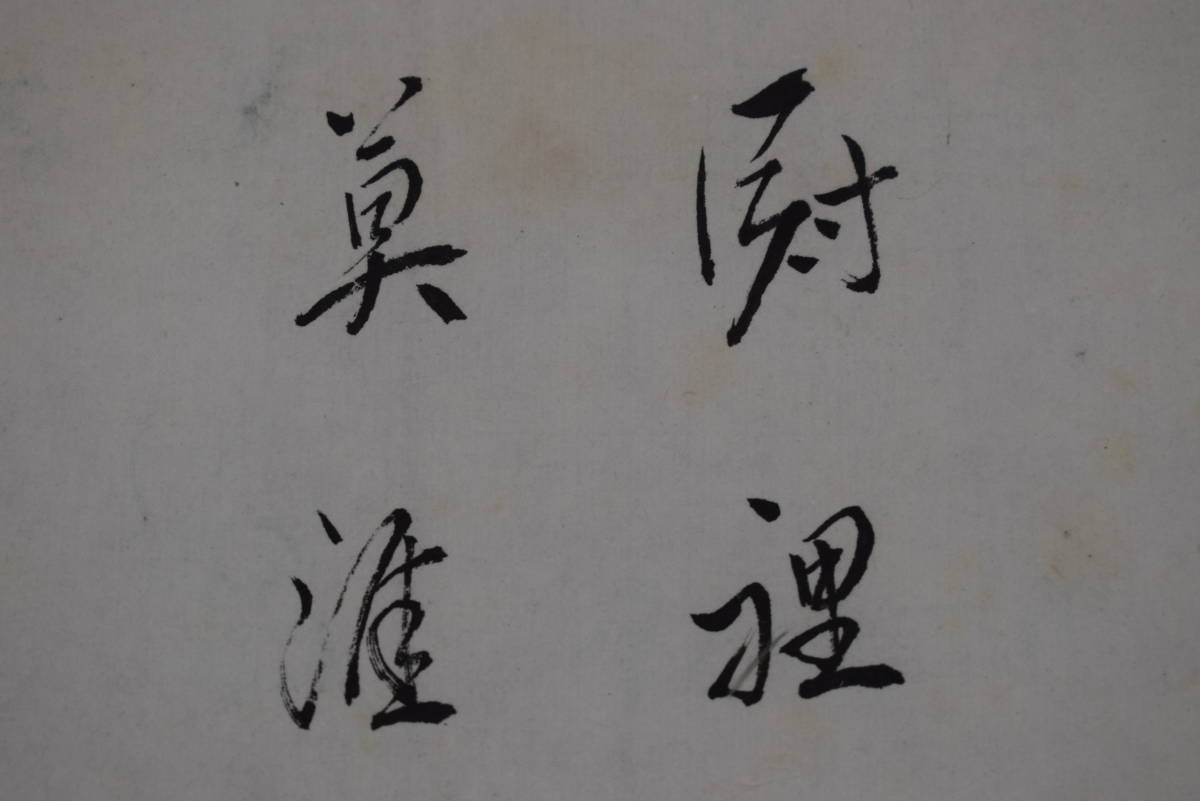 厨裡
莫涯